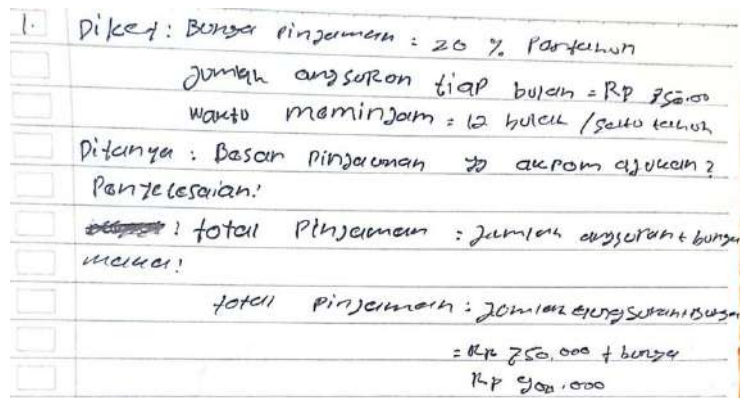 1. Diket: Bunga pinjaman = 20 % Pertahun
Jumlah angsuran tiap bulan = Rp 750.00
Waktu meminjam = 12 bulan / satu tahun
Ditanya : Besar pinjaman yg akpom ajukan?
Penyelesaian:
: total Pinjaman = Jumlah angsuran + bunga
maka:
total pinjaman = Jumlah angsuran + Bunga
= Rp 750.000 + bunga
Rp 900.000